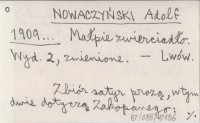 NOWACZYŃSKI Adolf
1909... Małpie zwierciadło.
Wyd. 2, zmienione. — Lwów.
Zbiór satyr prozą, w tym
dwie dotyczą Zakopanego:
%